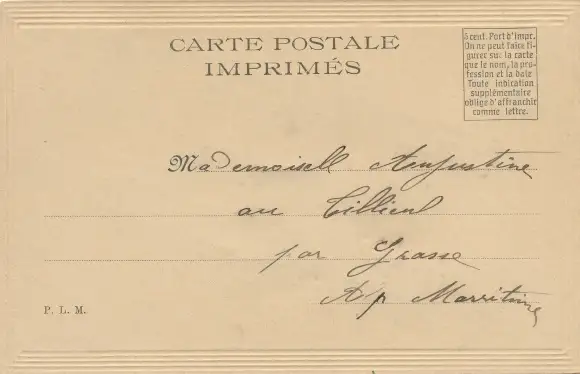 CARTE POSTALE
IMPRIMÉS
5 cent. Port d'Impr.
On ne peut faire fi-
gurer sur la carte
que le nom, la pro-
fession et la date
Toute indication
supplémentaire
oblige d'affranchir
comme lettre.
Mademoisell Augustine
au Tillieul
par Grasse
Ap Marritime
P. L. M.